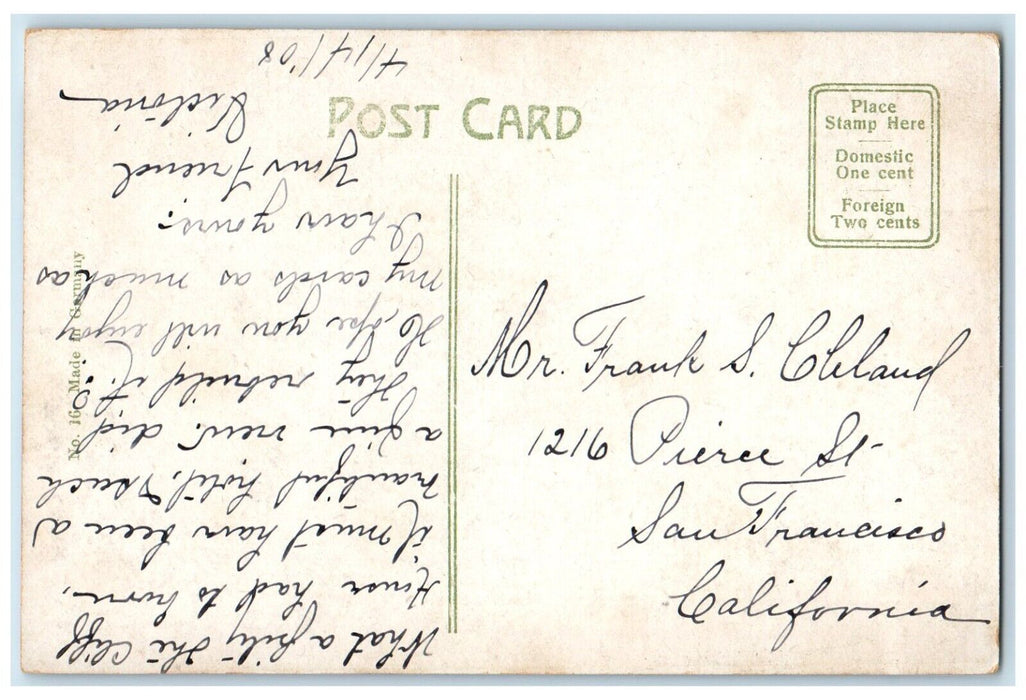 POST CARD
Place
Stamp Here
Domestic
One cent
Foreign
Two cents
No. 16. Made in Germany
What a pity the Cliff
House had to burn,
it must have been a
beautiful hotel, & such
a fine view. did
they rebuild it?
Ho,ope you will enjoy
my cards as much as
I have yours.
Your friend
Victoria
4/14/'08
Mr. Frank S. Cleland
1216 Pierce St
San Francisco
California